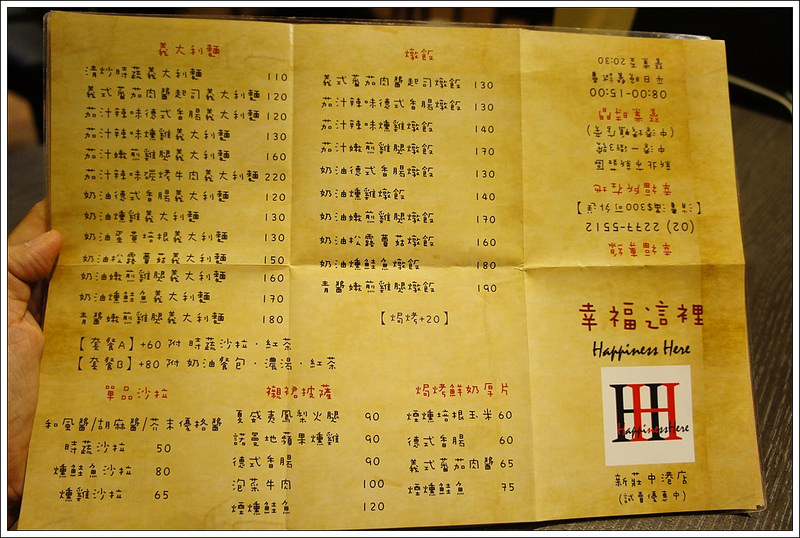 義大利麵
清炒時蔬義大利麵 110
義式蕃茄肉醬起司義大利麵 120
茄汁辣味德式香腸義大利麵 120
茄汁辣味燻雞義大利麵 130
茄汁嫩煎雞腿義大利麵 160
茄汁辣味碳烤牛肉義大利麵 220
奶油德式香腸義大利麵 120
奶油燻雞義大利麵 130
奶油蛋黃培根義大利麵 130
奶油松露蘑菇義大利麵 150
奶油嫩煎雞腿義大利麵 160
奶油燻鮭魚義大利麵 170
青醬嫩煎雞腿義大利麵 180
【套餐A】+60 附 時蔬沙拉．紅茶
【套餐B】+80 附 奶油餐包．濃湯．紅茶
燉飯
義式蕃茄肉醬起司燉飯 130
茄汁辣味德式香腸燉飯 130
茄汁辣味燻雞燉飯 140
茄汁嫩煎雞腿燉飯 170
奶油德式香腸燉飯 130
奶油燻雞燉飯 140
奶油嫩煎雞腿燉飯 170
奶油松露蘑菇燉飯 160
奶油燻鮭魚燉飯 180
青醬嫩煎雞腿燉飯 190
【焗烤+20】
單品沙拉
和風醬/胡麻醬/芥末優格醬
時蔬沙拉 50
燻鮭魚沙拉 80
燻雞沙拉 65
襯裙披薩
夏威夷鳳梨火腿 90
諾曼地蘋果燻雞 90
德式香腸 90
泡菜牛肉 100
煙燻鮭魚 120
焗烤鮮奶厚片
煙燻培根玉米 60
德式香腸 60
義式蕃茄肉醬 65
煙燻鮭魚 75
幸福專線
(02) 2277-5512
【消費滿$300可外送】
幸福所在地
新北市新莊區
中港一街3號
營業時間
08:00-15:00
營業至20:30
幸福這裡
Happiness Here
HH
HappinessHere
新莊中港店
(試賣優惠中)